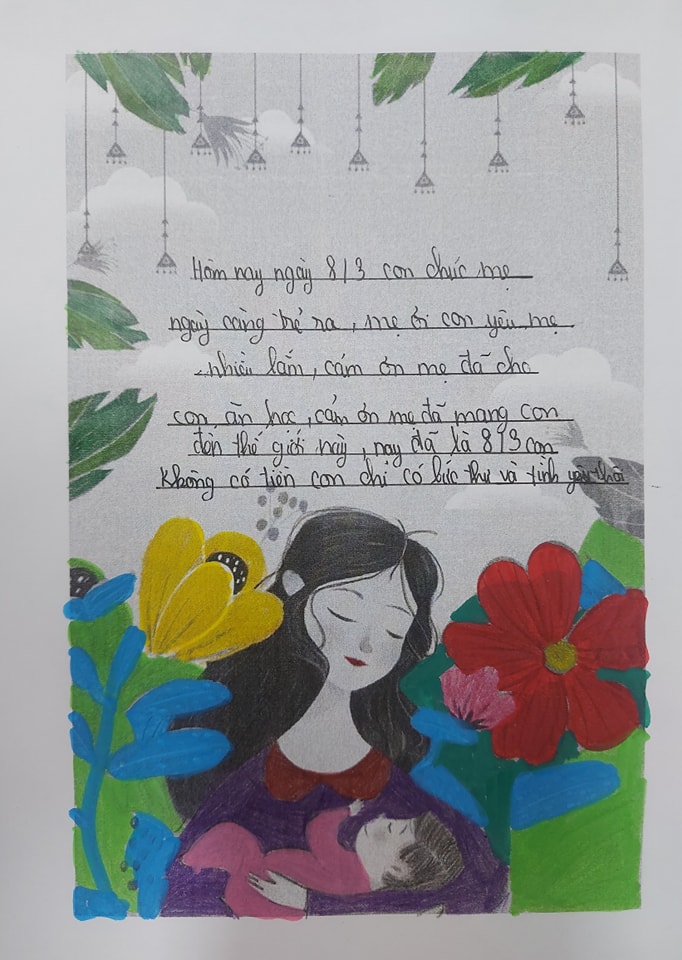 Hôm nay ngày 8/3 con chúc mẹ
ngày càng trẻ ra, mẹ ơi con yêu mẹ
nhiều lắm, cám ơn mẹ đã cho
con ăn học, cám ơn mẹ đã mang con
đến thế giới này, nay đã là 8/3 con
không có tiền con chỉ có bức thư và tình yêu thôi